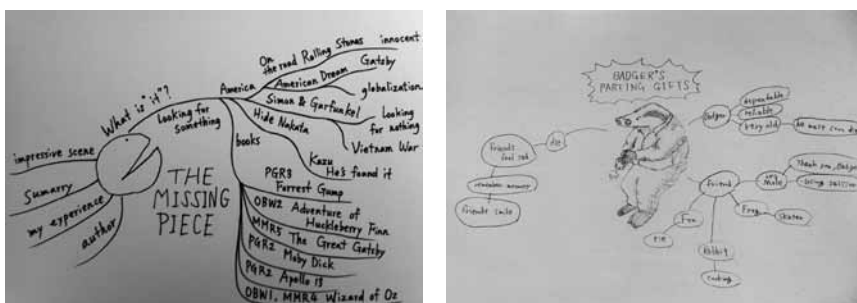 What is "it"?
looking for
something
America
On
the road Rolling Stones innocent
American Dream Gatsby
globalization
Simon & Garfunkel Looking
for nothing
Vietnam War
Hide Nakata
Kazu
He's found it
books
PGR3
Forrest Gump
OBW2 Adventure of
Huckleberry Finn
MMR5 The Great Gatsby
PGR2 Moby Dick
PGR2 Apollo 13
OBW1, MMR4 Wizard of Oz
impressive scene
Sumarry
my experience
author
THE
MISSING
PIECE
BADGER'S
PARTING GIFTS
Badger
dependable
reliable
very old
he must soon die
die
friends
feel sad
friends smile
friend
Mole
Thank you, Badger
using scissors
Frog
skates
Fox
tie
Rabbit
cooking